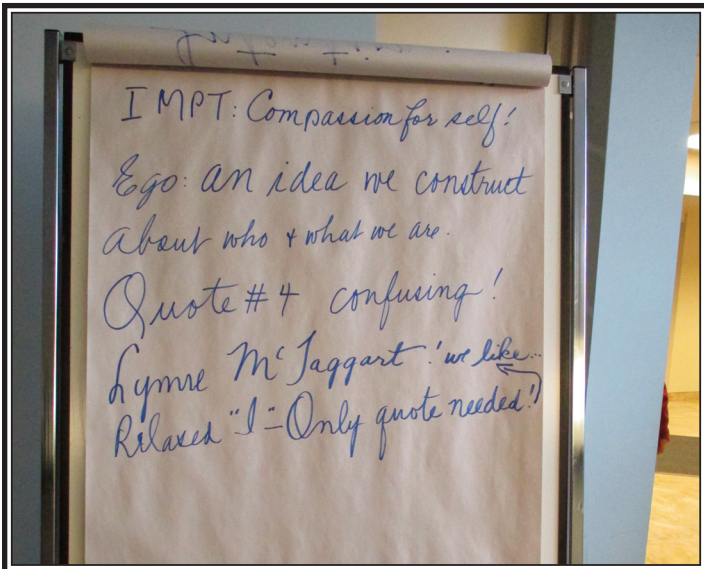 IMPT: Compassion for self!
Ego: an idea we construct
about who + what we are.
Quote #4 confusing!
Lynne McTaggart! we like...
Relaxed "I" - Only quote needed!